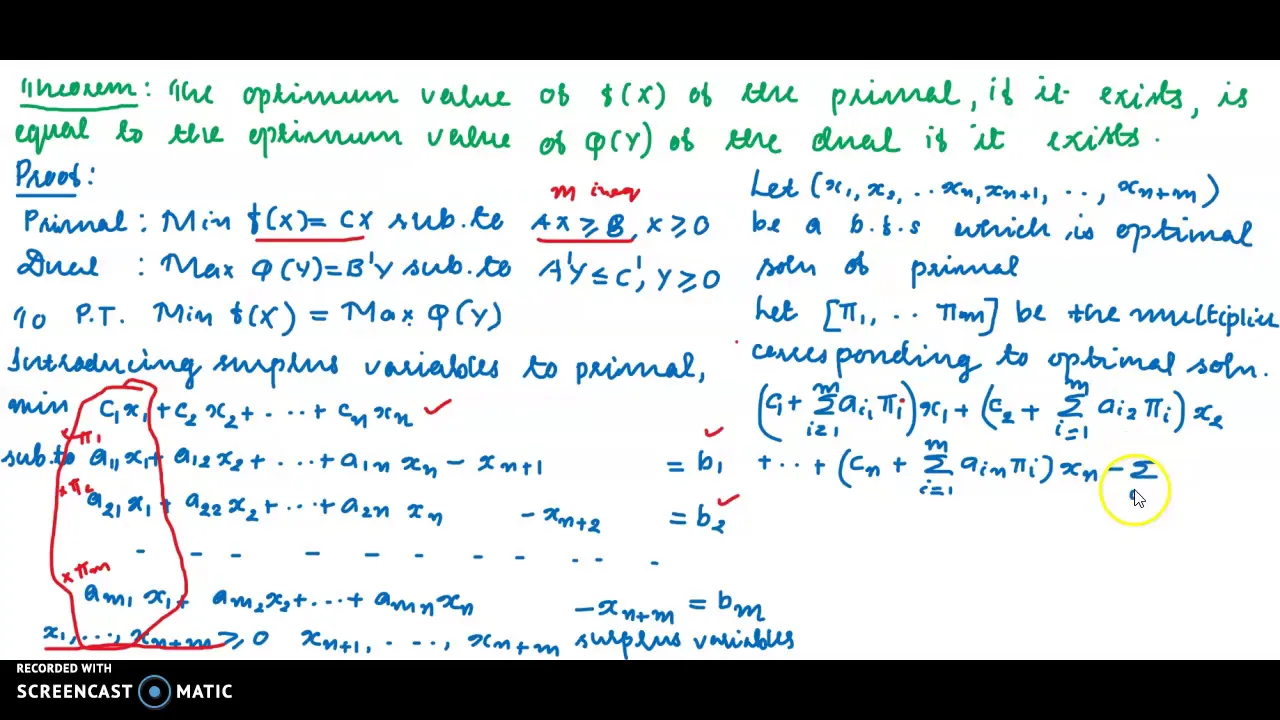 Theorem: The optimum value of f(X) of the primal, if it exists, is
equal to the optimum value of φ(Y) of the dual if it exists.
Proof:
m ineq
Primal: Min f(X)= CX sub.to AX ≥ B, X ≥ 0
Dual : Max φ(Y)=B'Y sub.to A'Y ≤ C', Y ≥ 0
To P.T. Min f(X) = Max φ(Y)
Introducing surplus variables to primal,
min c₁x₁ + c₂x₂ + ... + cₙxₙ ✓
×π₁
sub.to a₁₁x₁ + a₁₂x₂ + ... + a₁ₙxₙ - xₙ₊₁ = b₁ ✓
×π₂
a₂₁x₁ + a₂₂x₂ + ... + a₂ₙxₙ - xₙ₊₂ = b₂ ✓
- - - - - - - - .. .
×πₘ
aₘ₁x₁ + aₘ₂x₂ + ... + aₘₙxₙ - xₙ₊ₘ = bₘ
x₁, ..., xₙ₊ₘ ≥ 0 xₙ₊₁, ..., xₙ₊ₘ surplus variables
Let (x₁, x₂, ..xₙ, xₙ₊₁, .., xₙ₊ₘ)
be a b.f.s which is optimal
soln of primal
Let [π₁, .. πₘ] be the multiplier
corresponding to optimal soln.
(c₁ + Σᵢ₌₁ᵐ aᵢ₁πᵢ)x₁ + (c₂ + Σᵢ₌₁ᵐ aᵢ₂πᵢ)x₂
+ ... + (cₙ + Σᵢ₌₁ᵐ aᵢₙπᵢ)xₙ - Σ
RECORDED WITH
SCREENCAST MATIC